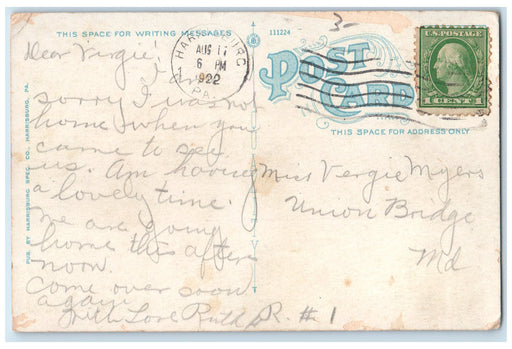 THIS SPACE FOR WRITING MESSAGES
111224
HARRISBURG
AUG 11
6 PM
1922
PA.
U.S. POSTAGE
1 CENT 1
POST CARD
THIS SPACE FOR ADDRESS ONLY
PUB. BY HARRISBURG SPEC. CO. HARRISBURG, PA.
Dear Vergie!
I am
sorry I was not
home when you
came to see
us. Am having
a lovely time.
We are going
home this after
noon.
Come over soon
again
With Love Ruth
Miss Vergie Myers
Union Bridge
Md
R. #1